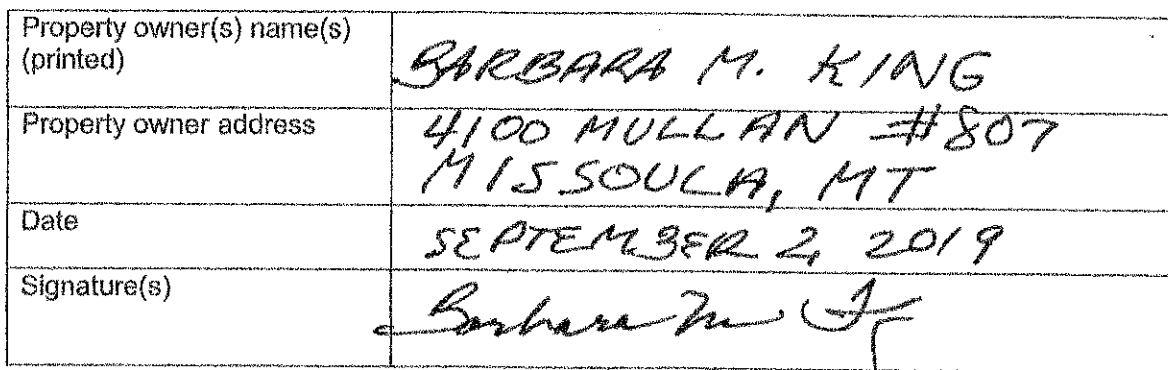 Property owner(s) name(s)
(printed)
BARBARA M. KING
Property owner address
4100 MULLAN #807
MISSOULA, MT
Date
SEPTEMBER 2, 2019
Signature(s)
Barbara M